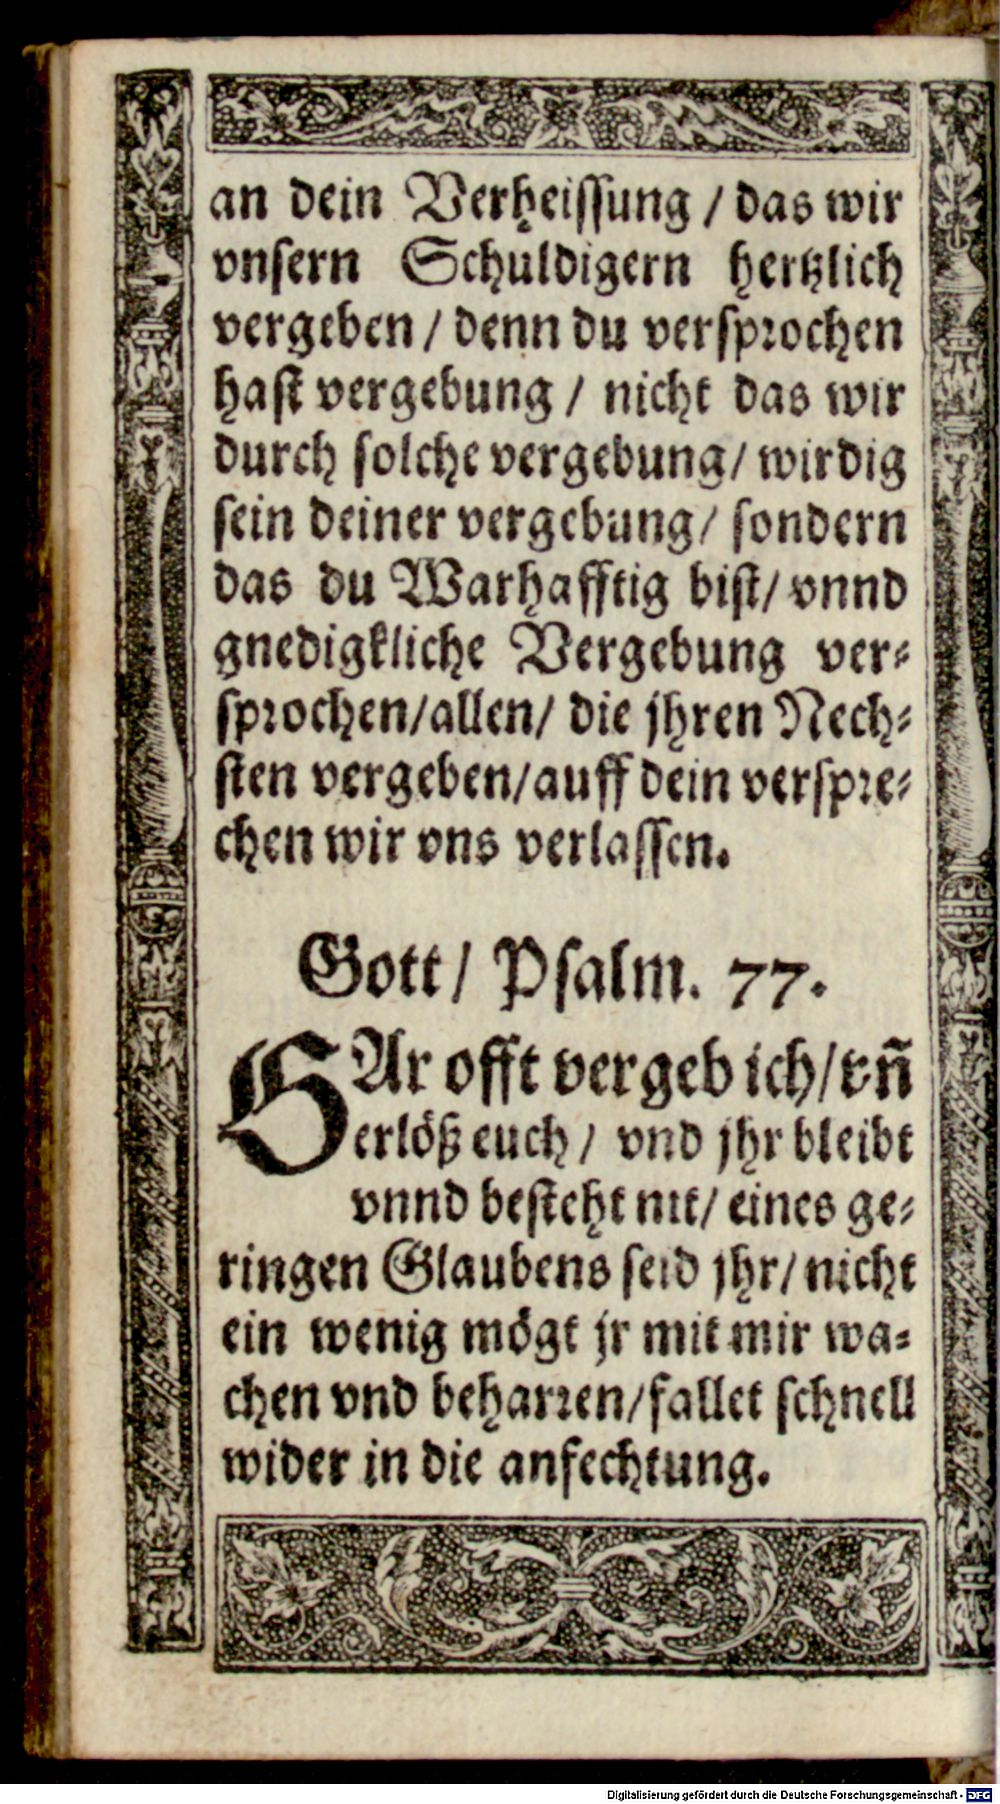 an dein Verheissung / das wir
vnsern Schuldigern hertzlich
vergeben / denn du versprochen
hast vergebung / nicht das wir
durch solche vergebung / wirdig
sein deiner vergebung / sondern
das du Warhafftig bist / vnnd
gnedigkliche Vergebung ver-
sprochen / allen / die jhren Nech-
sten vergeben / auff dein verspre-
chen wir vns verlassen.
Gott / Psalm. 77.
GAr offt vergeb ich / vn̄
erlöß euch / vnd jhr bleibt
vnnd besteht nit / eines ge-
ringen Glaubens seid jhr / nicht
ein wenig mögt jr mit mir wa-
chen vnd beharren / fallet schnell
wider in die anfechtung.
Digitalisierung gefördert durch die Deutsche Forschungsgemeinschaft - DFG